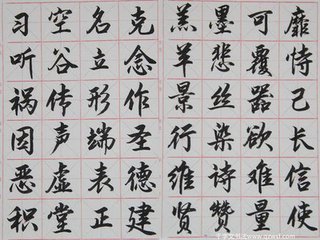 靡恃己长信使
可覆器欲难量
墨悲丝染诗赞
羔羊景行维贤
克念作圣德建
名立形端表正
空谷传声虚堂
习听祸因恶积